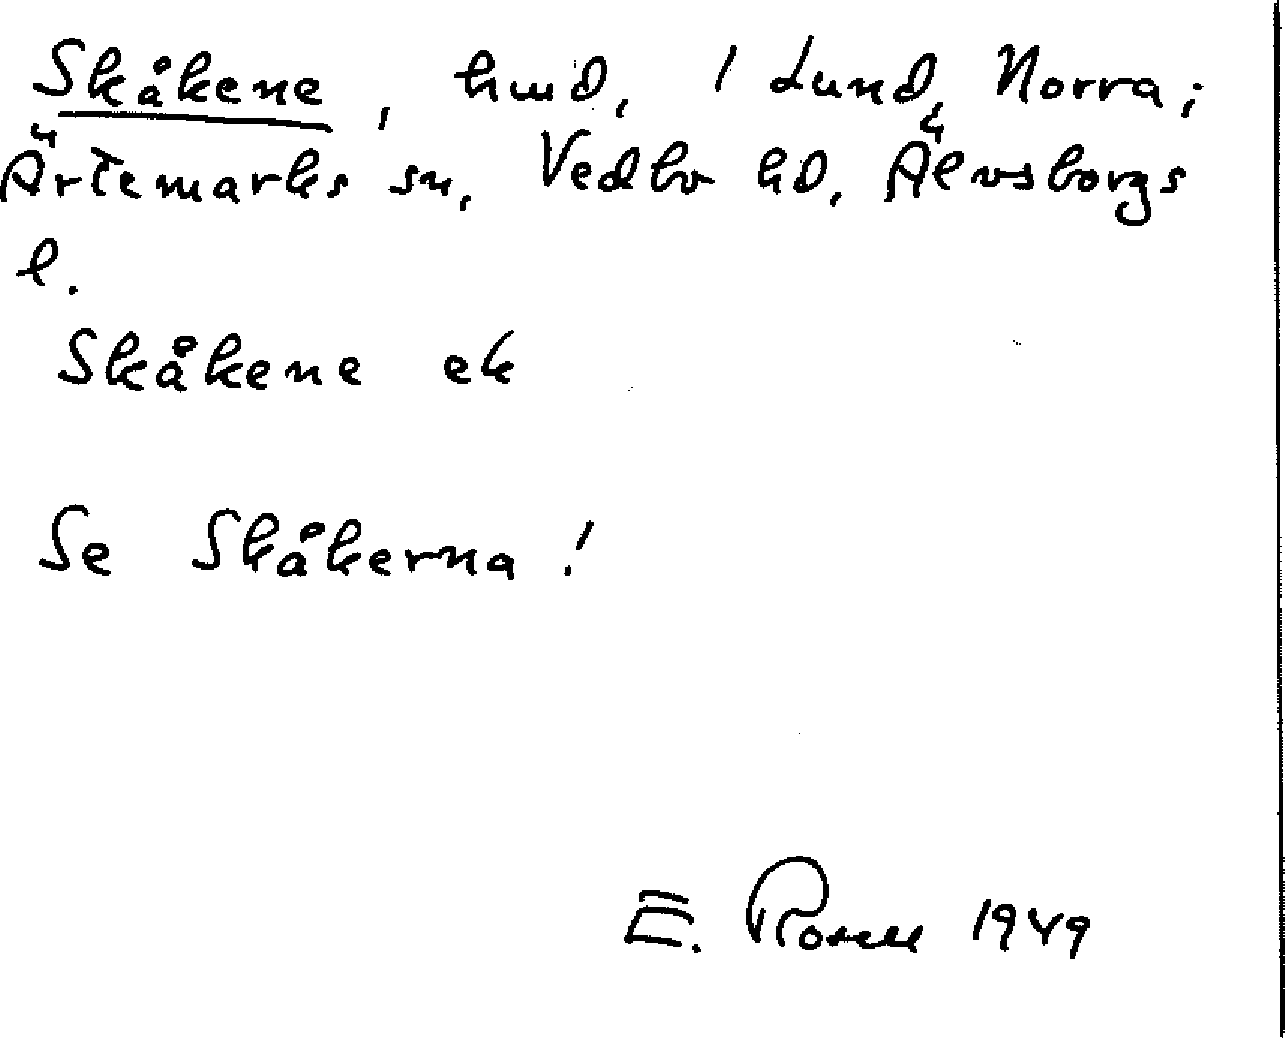 Skåkene, hmd, / Lund, Norra;
Ärtemarks sn, Vedbo hd, Älvsborgs
l.
Skåkene ek
Se Skåkerna!
E. Rosell 1949